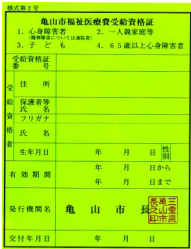 様式第2号
亀山市福祉医療費受給資格証
1．心身障害者 2．一人親家庭等
(精神障害については通院者)
3．子ども 4．65歳以上心身障害者
受給資格証番号
受給資格者
住所
保護者等氏名
フリガナ
氏名
生年月日 年 月 日 性別
有効期間 年 月 日から
年 月 日まで
発行機関名 亀山市長
三重県亀山市長之印
交付年月日 年 月 日